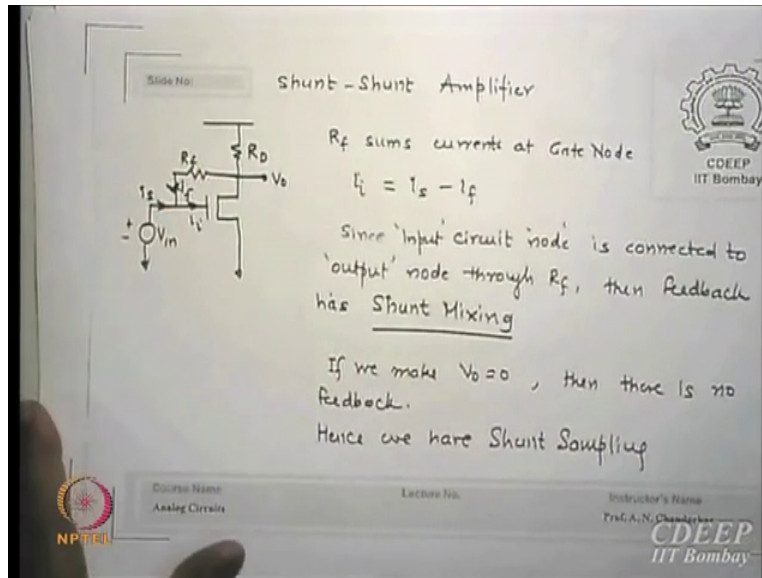 Slide No:
Shunt - Shunt Amplifier
CDEEP
IIT Bombay
Rf sums currents at Gate Node
Ii = Is - If
Since 'input' circuit 'node' is connected to
'output' node through Rf, then feedback
has Shunt Mixing
If we make Vo = 0, then there is no
feedback.
Hence we have Shunt Sampling
RD
Rf
Vo
Is
If
Ii
+
-
Vin
Course Name
Analog Circuits
Lecture No.
Instructor's Name
Prof. A. N. Chandorkar
NPTEL
CDEEP
IIT Bombay